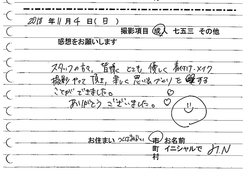 2018年11月4日(日)
撮影項目 成人 七五三 その他
感想をお願いします
スタッフの方々、皆様 とても 優しく 着付け、メイク
撮影 やって 頂き、楽しく 思い出 づくり を
ことが できました。
ありがとう ございました。
お住まい つくばみらい 市町村 お名前 イニシャルで M.N